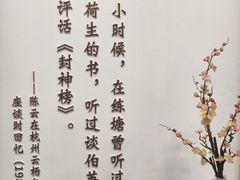 小时候，在练塘曾听过
荷生的书，听过谈伯英
评话《封神榜》。
——陈云在杭州云栖
座谈时回忆（19